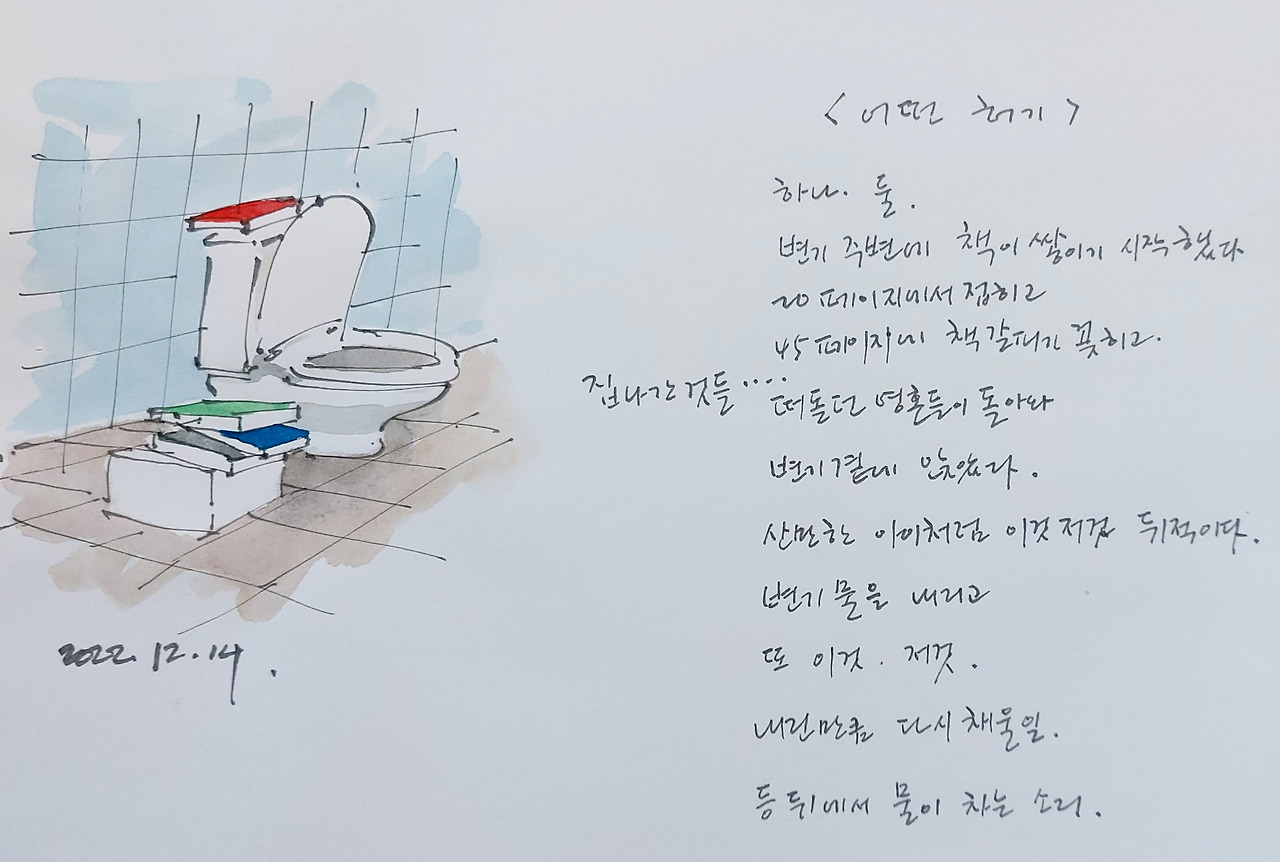 <어떤 허기>
하나. 둘.
변기 주변에 책이 쌓이기 시작했다
20페이지에서 접히고
45페이지에 책갈피가 꽂히고.
집나간것들....
떠돌던 영혼들이 돌아와
변기곁에 앉았다.
산만한 아이처럼 이것저것 뒤적이다.
변기물을 내리고
또 이것. 저것.
내린만큼 다시 채울일.
등뒤에서 물이 차는 소리.
2022.12.14.